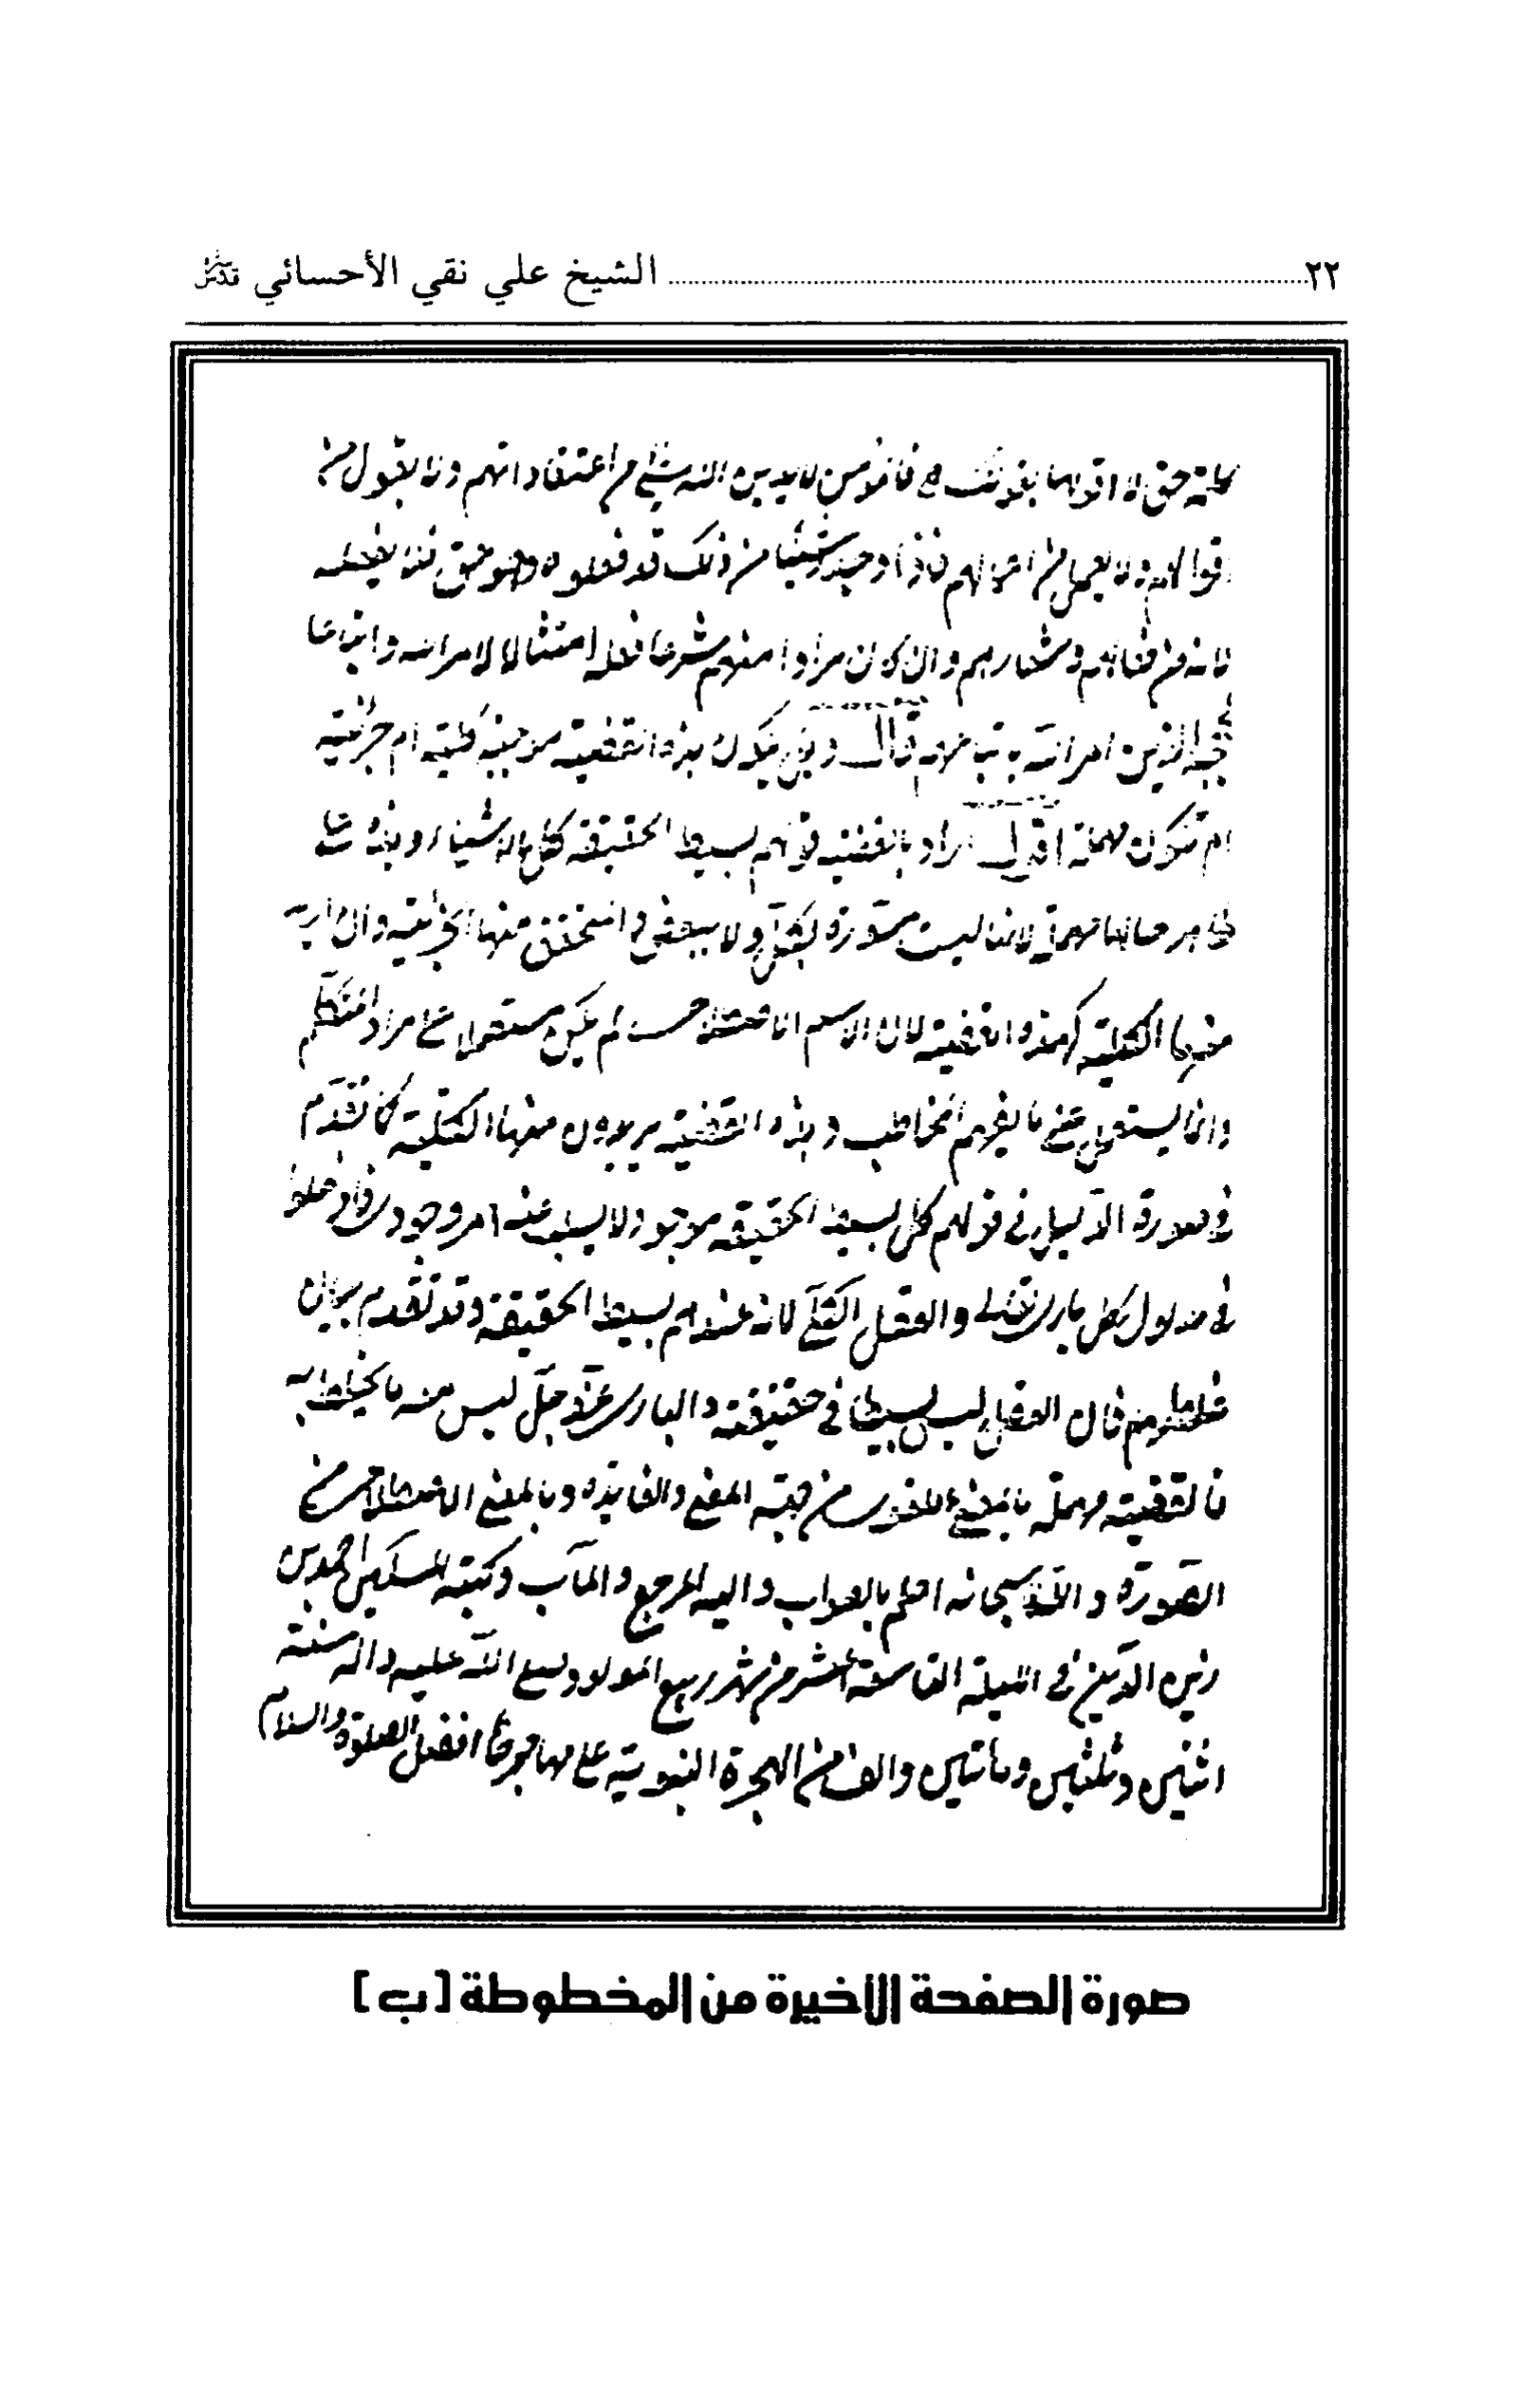 ٢٢ ........ الشيخ علي نقي الأحسائي
كلمة حق لا اقولها بقولك فالمؤمن لا يدين الله بشيء من اعتقاداتهم ولا يقول من
اقوالهم ولا يعمل من اعمالهم فاذا وجد شيئا من ذلك قد فعلوه وهو حق فلا يفعله
لانه من فعالهم وشعارهم وان كان مرادا منهم شرعا فعله امتثالا لامر الله واتباعا
الذين امر الله قال وهل يكون هذه القضية موجبة كلية ام جزئية
ام تكون مهملة اقول اراد بالقضية قولهم بسيط الحقيقة كل الاشياء وهذه على
ظاهر حالها مهملة لانها ليست مسورة بكل ولا ببعض والمتحقق منها الجزئية وان اريد
منها الكلية كهذه القضية لان الاسم الاصطلاحي لم يكن مستعملا على مراد المتكلم
وانما يستعمل على ما يفهم المخاطب وهذه القضية يريدون منها الكلية كما تقدم
في صورة الدليل في قولهم كل بسيط الحقيقة موجود لا يسلب عنه امر وجودي وادخلوا
في مدلول كل الباري تعالى والعقل الكلي لانه عندهم بسيط الحقيقة وقد تقدم بيان
غلطهم فان العقل ليس بسيطا في حقيقته والباري عز وجل ليس معه ما يخلط به
فالقضية مهملة بالمعنى اللغوي من جهة المعنى والفايدة وبالمعنى الاصطلاحي من
الصورة والله سبحانه اعلم بالصواب واليه المرجع والمآب وكتبه المسكين احمد بن
زين الدين في الليلة التاسعة عشر من شهر ربيع المولود صلى الله عليه واله سنة
اثنين وثلثين ومأتين والف من الهجرة النبوية على مهاجرها افضل الصلوة والسلام
صورة الصفحة الأخيرة من المخطوطة [ب]